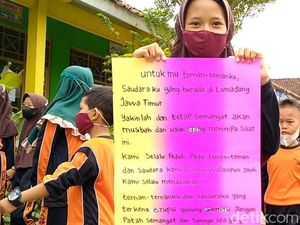 untuk mu teman-temanku,
Saudara ku yang berada di Lumadang
Jawa Timur
Yakinlah dan tetap semangat akan
musibah dan ujian yang menimpa saat
ini.
Kami selalu Peduli Pada teman-teman
dan Saudara kami di sana walaupun jauh
Kami selalu mendoakan
teman-teman dan saudaraku yang
terkena erupsi gunung Semeru Jangan
Patah semangat dan Semoga
detikcom